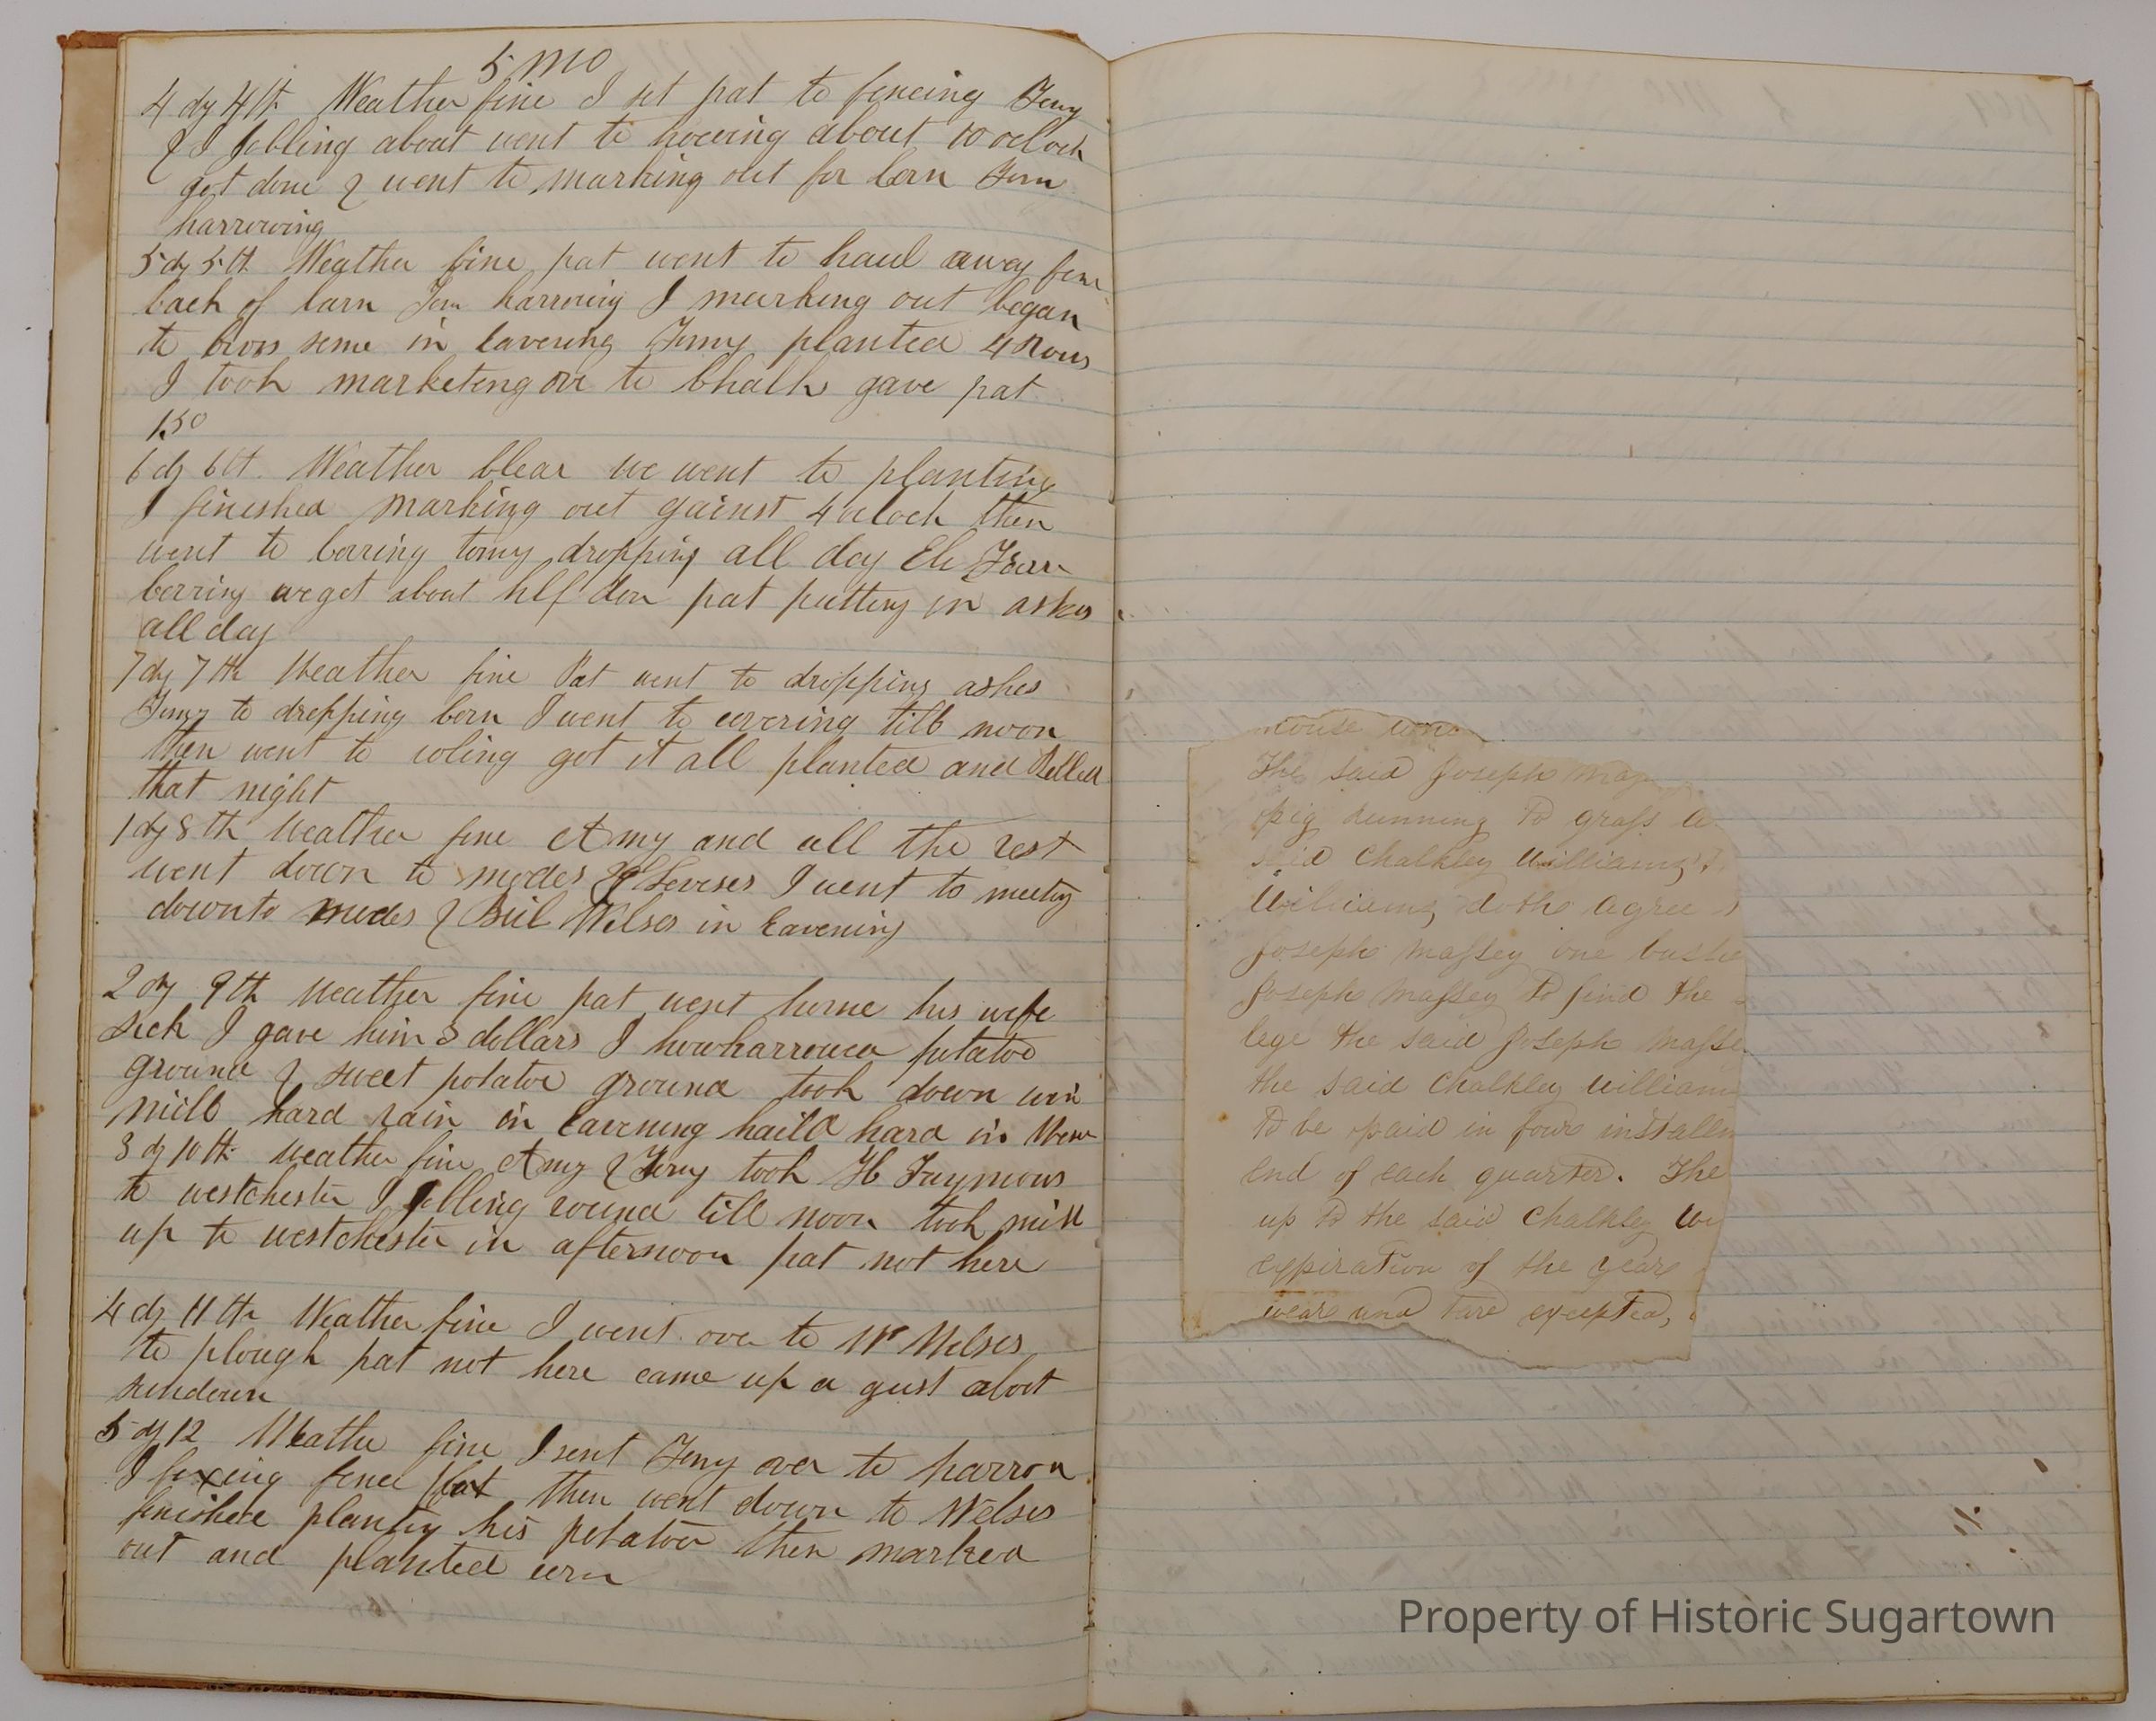 5 mo
4 dy 4th Weather fine I set pat to fencing Tomy
& I Jobling about went to howing about 10 oclock
got done & went to marking out for Corn Tom
harrowing
5 dy 5th Weather fine pat went to haul away
back of barn Tom harrowing I marking out began
to cross some in Eavening Tomy planted 4 Rows
I took marketing to Chalk gave pat
1.50
6 dy 6th Weather Clear we went to planting
I fineshed marking out gainst 4 oclock then
went to tomy dropping all day
we got about hlf don pat putting in ashes
all day
7 dy 7th Weather fine Pat went to dropping ashes
Tomy to dropping Corn I went to covering till noon
then went to roling got it all planted and Rolled
that night
1 dy 8th Weather fine Amy and all the rest
went down to modes I went to meeting
down to modes & Bill Wilses in Eavening
2 dy 9th Weather fine pat went home his wife
sick I gave him 3 dollars I harrowed potatoe
ground & sweet potatoe ground took down win
mill hard rain in Eavening haild hard in
3 dy 10th Weather fine Amy & Tomy took H
to westchester I Jobling round till noon took mill
up to westchester in afternoon pat not here
4 dy 11th Weather fine I went over to Wm Wilses
to plough pat not here came up a gust abot
sundown
5 dy 12 Weather fine I sent Tomy over to harrow
I fixing fence then went down to Wilses
finished planting his potatoes then marked
out and planted corn
The said Joseph Mas
pig running to grass a
said Chalkley Williams
Williams doth agree
Joseph Massey one bushe
Joseph Massey to find the
lege the said Joseph Masse
the said Chalkley William
to be paid in four installm
end of each quarter. The
up to the said Chalkley Wi
expiration of the year
wear and tare excepted,
Property of Historic Sugartown